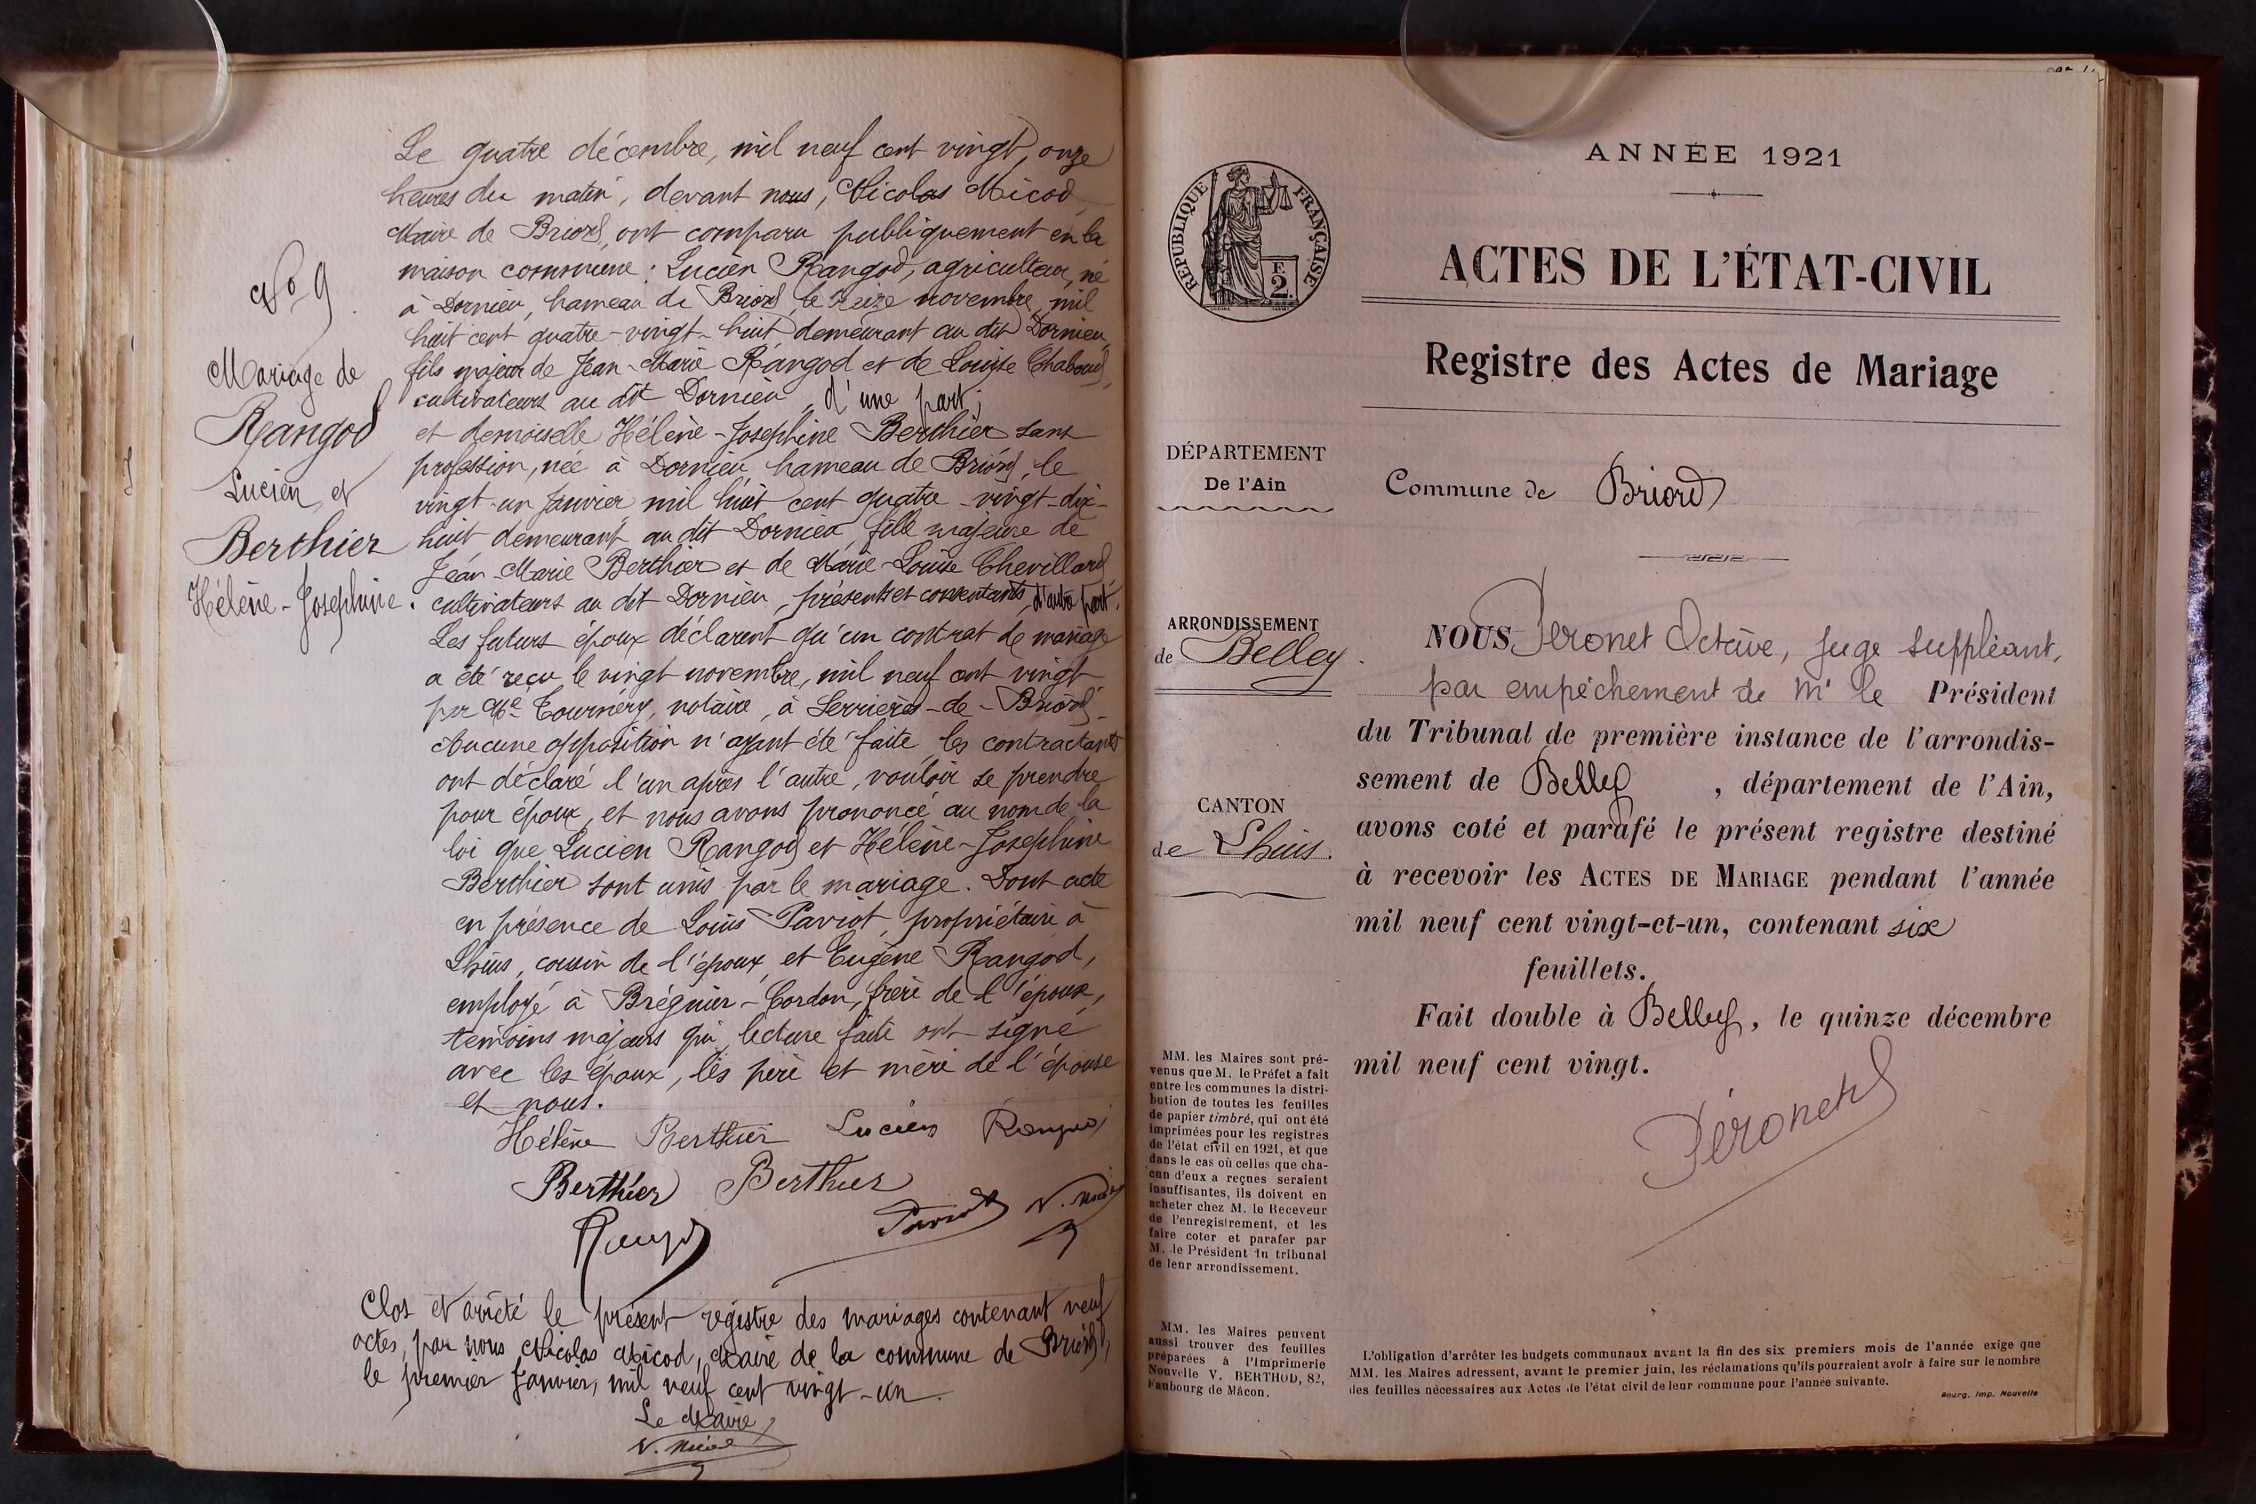 Le quatre décembre, mil neuf cent vingt, onze
heures du matin, devant nous, Nicolas Micod,
Maire de Briord, ont comparu publiquement en la
maison commune : Lucien Rangod, agriculteur, né
à Dornieu, hameau de Briord, le seize novembre, mil
huit cent quatre-vingt-huit demeurant au dit Dornieu,
fils majeur de Jean-Marie Rangod et de Louise Chaboud,
cultivateurs au dit Dornieu, d'une part;
et demoiselle Hélène-Joséphine Berthier sans
profession, née à Dornieu, hameau de Briord, le
vingt-un Janvier mil huit cent quatre-vingt-dix-
huit demeurant au dit Dornieu, fille majeure de
Jean-Marie Berthier et de Marie-Louise Chevillard
cultivateurs au dit Dornieu, présents et consentants, d'autre part.
Les futurs époux déclarent qu'un contrat de mariage
a été reçu le vingt novembre, mil neuf cent vingt
par Me Tournéry, notaire, à Serrières-de-Briord.
Aucune opposition n'ayant été faite les contractants
ont déclaré l'un après l'autre, vouloir se prendre
pour époux, et nous avons prononcé au nom de la
loi que Lucien Rangod et Hélène-Joséphine
Berthier sont unis par le mariage. Dont acte
en présence de Louis Paviot, propriétaire à
Lhuis, cousin de l'époux, et Eugène Rangod,
employé à Brégnier-Cordon, frère de l'époux,
témoins majeurs qui, lecture faite ont signé
avec les époux, les père et mère de l'épouse
et nous.
Hélène Berthier Lucien Rangod
Berthier Berthier
Rangod Paviot N. Micod
Clos et arrêté le présent registre des mariages contenant neuf
actes, par nous Nicolas Micod, Maire de la commune de Briord,
le premier Janvier, mil neuf cent vingt-un.
Le Maire
N. Micod
No 9
Mariage de
Rangod
Lucien, et
Berthier
Hélène-Joséphine.
ANNÉE 1921
RÉPUBLIQUE FRANÇAISE
2
ACTES DE L'ÉTAT-CIVIL
Registre des Actes de Mariage
DÉPARTEMENT
De l'Ain
Commune de Briord
ARRONDISSEMENT
de Belley.
CANTON
de Lhuis.
NOUS Péronet Octave, juge suppléant,
par empêchement de Mr le Président
du Tribunal de première instance de l'arrondis-
sement de Belley , département de l'Ain,
avons coté et parafé le présent registre destiné
à recevoir les ACTES DE MARIAGE pendant l'année
mil neuf cent vingt-et-un, contenant six
feuillets.
Fait double à Belley, le quinze décembre
mil neuf cent vingt.
Péronet
MM. les Maires sont pré-
venus que M. le Préfet a fait
entre les communes la distri-
bution de toutes les feuilles
de papier timbré, qui ont été
imprimées pour les registres
de l'état civil en 1921, et que
dans le cas où celles que cha-
cun d'eux a reçues seraient
insuffisantes, ils doivent en
acheter chez M. le Receveur
de l'enregistrement, et les
faire coter et parafer par
M. le Président du tribunal
de leur arrondissement.
MM. les Maires peuvent
aussi trouver des feuilles
préparées à l'Imprimerie
Nouvelle V. BERTHOD, 82,
Faubourg de Mâcon.
L'obligation d'arrêter les budgets communaux avant la fin des six premiers mois de l'année exige que
MM. les Maires adressent, avant le premier juin, les réclamations qu'ils pourraient avoir à faire sur le nombre
des feuilles nécessaires aux Actes de l'état civil de leur commune pour l'année suivante.
Bourg, Imp. Nouvelle